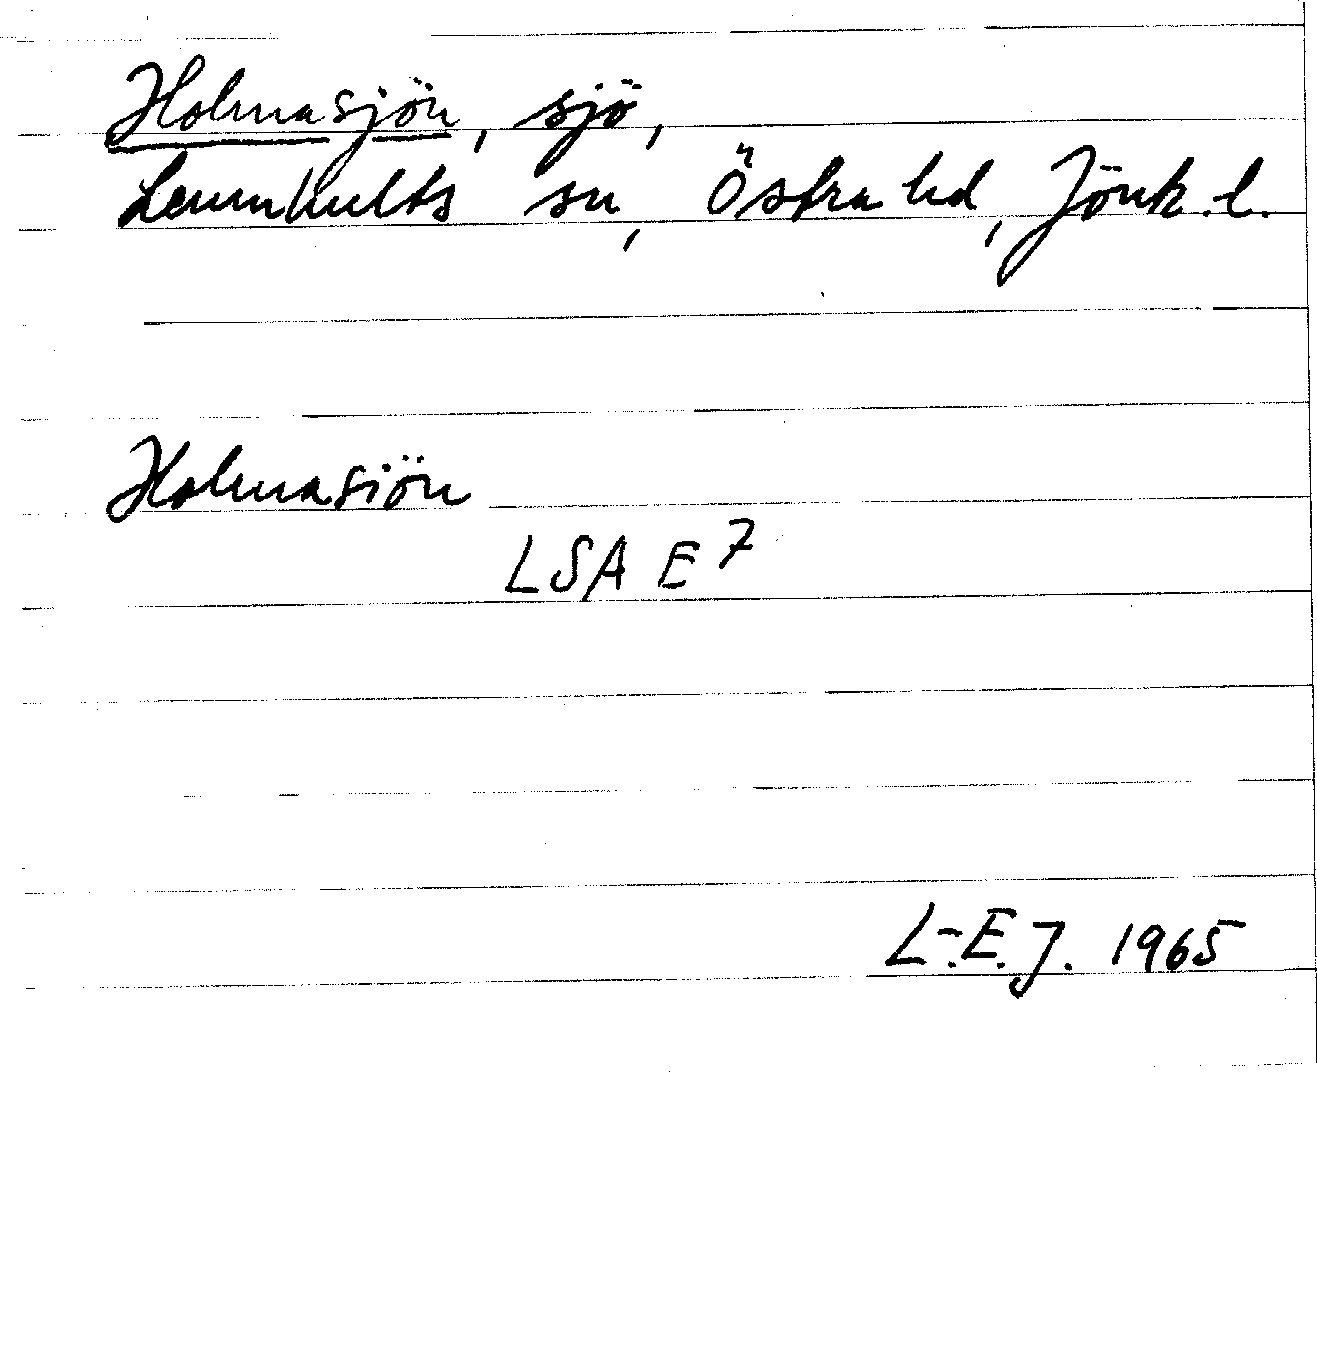 Holmasjön, sjö,
Lemnhults sn, Östra hd, Jönk. l.
Holmasiön
LSA E7
L.-E. J. 1965